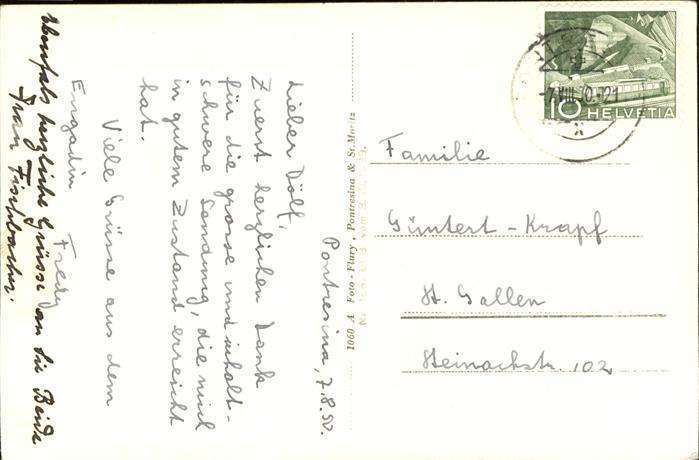 Pontresina, 7.8.50.
Lieber Dölf,
Zuerst herzlichen Dank
für die grosse und inhalt-
schwere Sendung, die mich
in gutem Zustand erreicht
hat.
Viele Grüsse aus dem
Engadin Fredy
Ebenfals herzliche Grüsse an Sie Beide
Frau Fischbacher.
1060 A Foto-Flury, Pontresina & St. Moritz
10 HELVETIA
Familie
Güntert-Krapf
St. Gallen
Heinachstr. 102